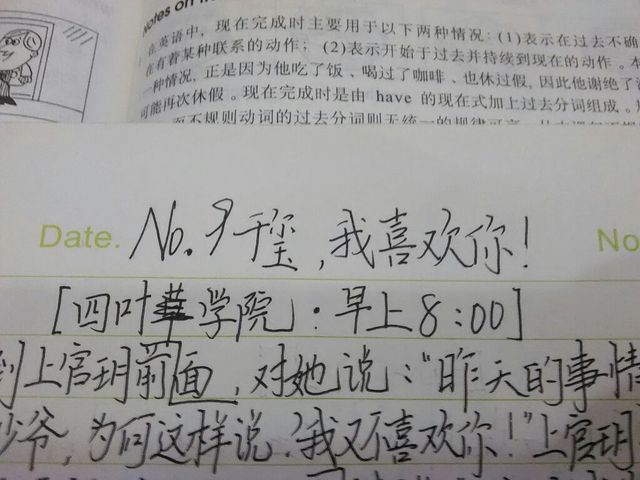 Notes on
在英语中，现在完成时主要用于以下两种情况：(1)表示在过去不确
在有着某种联系的动作；(2)表示开始于过去并持续到现在的动作。本
一种情况，正是因为他吃了饭、喝过了咖啡、也休过假，因此他谢绝了
可能再次休假。现在完成时是由 have 的现在式加上过去分词组成。
而不规则动词的过去分词则无统一的规律可言
Date. No. 9 千玺，我喜欢你！ No
[四叶草学院·早上8:00]
到上官玥前面，对她说："昨天的事情
少爷，为何这样说？我又不喜欢你！"上官玥